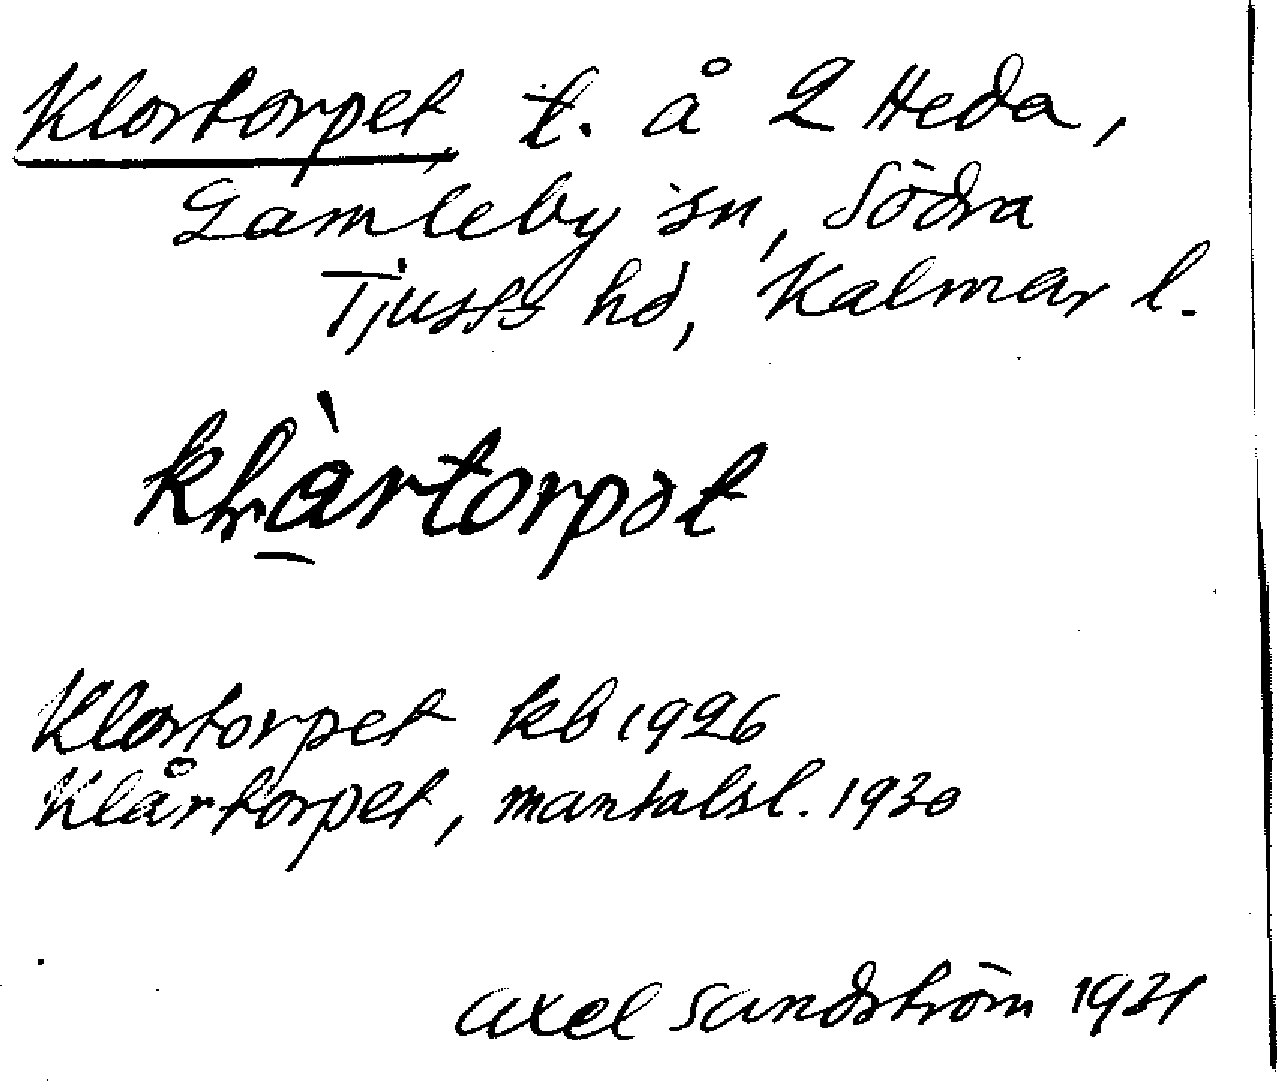 Klortorpet t. å 2 Heda,
Gamleby sn, Södra
Tjusts hd, Kalmar l.
klàrtorpət
Klortorpet kb 1926
Klårtorpet, mantalsl. 1930
Axel Sandström 1931